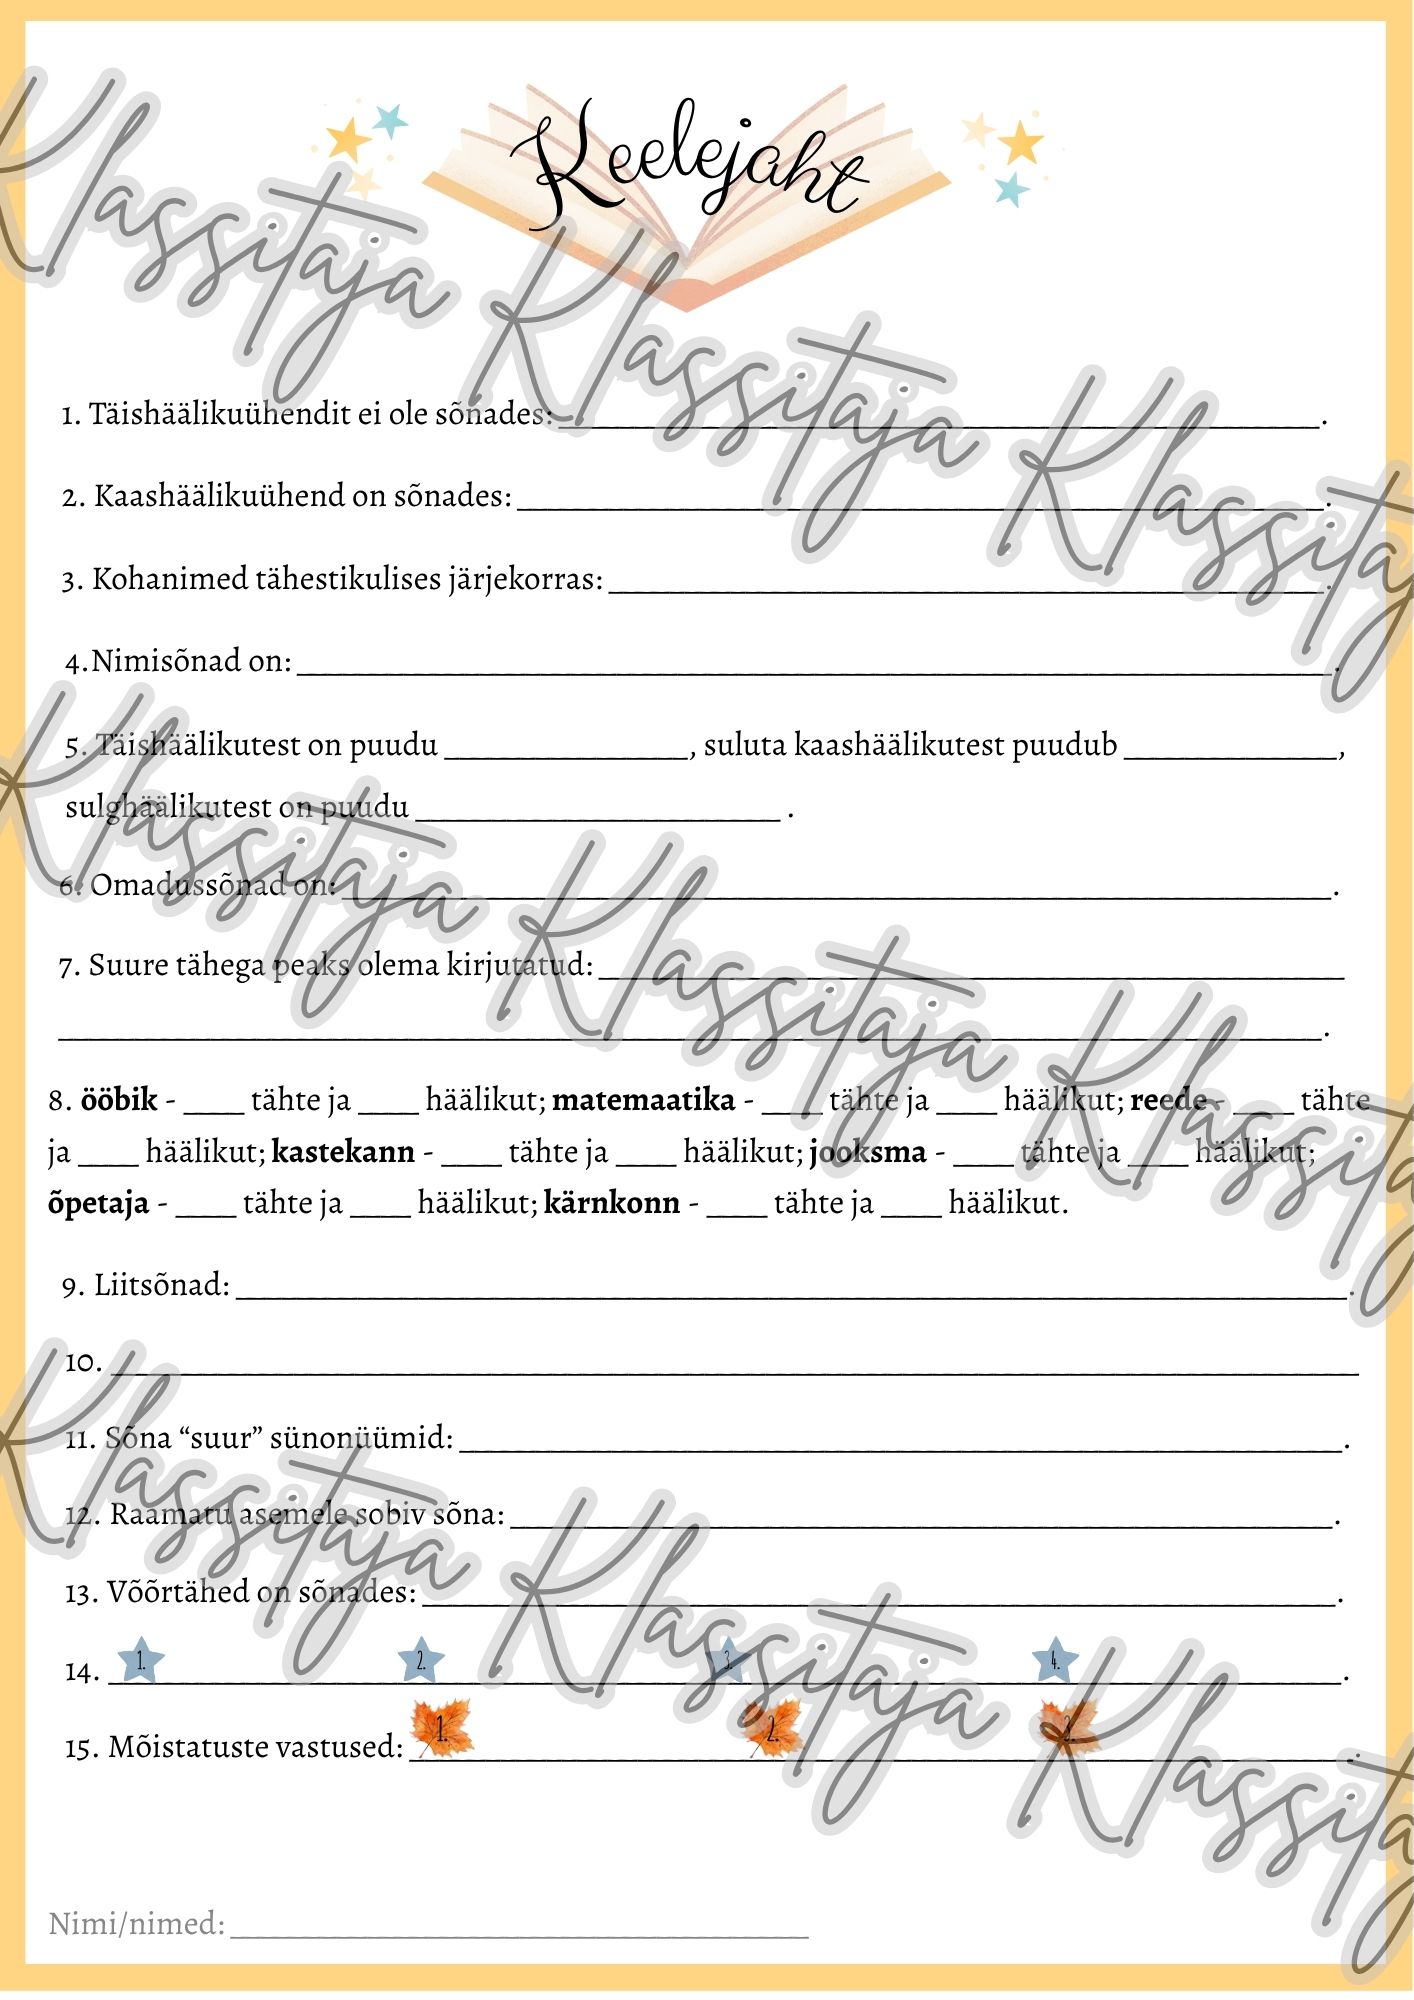 Keelejaht
1. Täishäälikuühendit ei ole sõnades: ____________.
2. Kaashäälikuühend on sõnades: ____________.
3. Kohanimed tähestikulises järjekorras: ____________.
4.Nimisõnad on: ____________.
5. Täishäälikutest on puudu ____________, suluta kaashäälikutest puudub ____________,
sulghäälikutest on puudu ____________ .
6. Omadussõnad on: ____________.
7. Suure tähega peaks olema kirjutatud: ____________
____________.
8. ööbik - ____ tähte ja ____ häälikut; matemaatika - ____ tähte ja ____ häälikut; reede - ____ tähte
ja ____ häälikut; kastekann - ____ tähte ja ____ häälikut; jooksma - ____ tähte ja ____ häälikut;
õpetaja - ____ tähte ja ____ häälikut; kärnkonn - ____ tähte ja ____ häälikut.
9. Liitsõnad: ____________.
10. ____________
11. Sõna “suur” sünonüümid: ____________.
12. Raamatu asemele sobiv sõna: ____________.
13. Võõrtähed on sõnades: ____________.
14. 1. 2. 3. 4. ____________.
15. Mõistatuste vastused: 1. 2. 3. ____________.
Nimi/nimed: ____________
Klassitaja Klassitaja Klassitaj
Klassitaja Klassitaja Klassitaj
Klassitaja Klassitaja Klassitaj